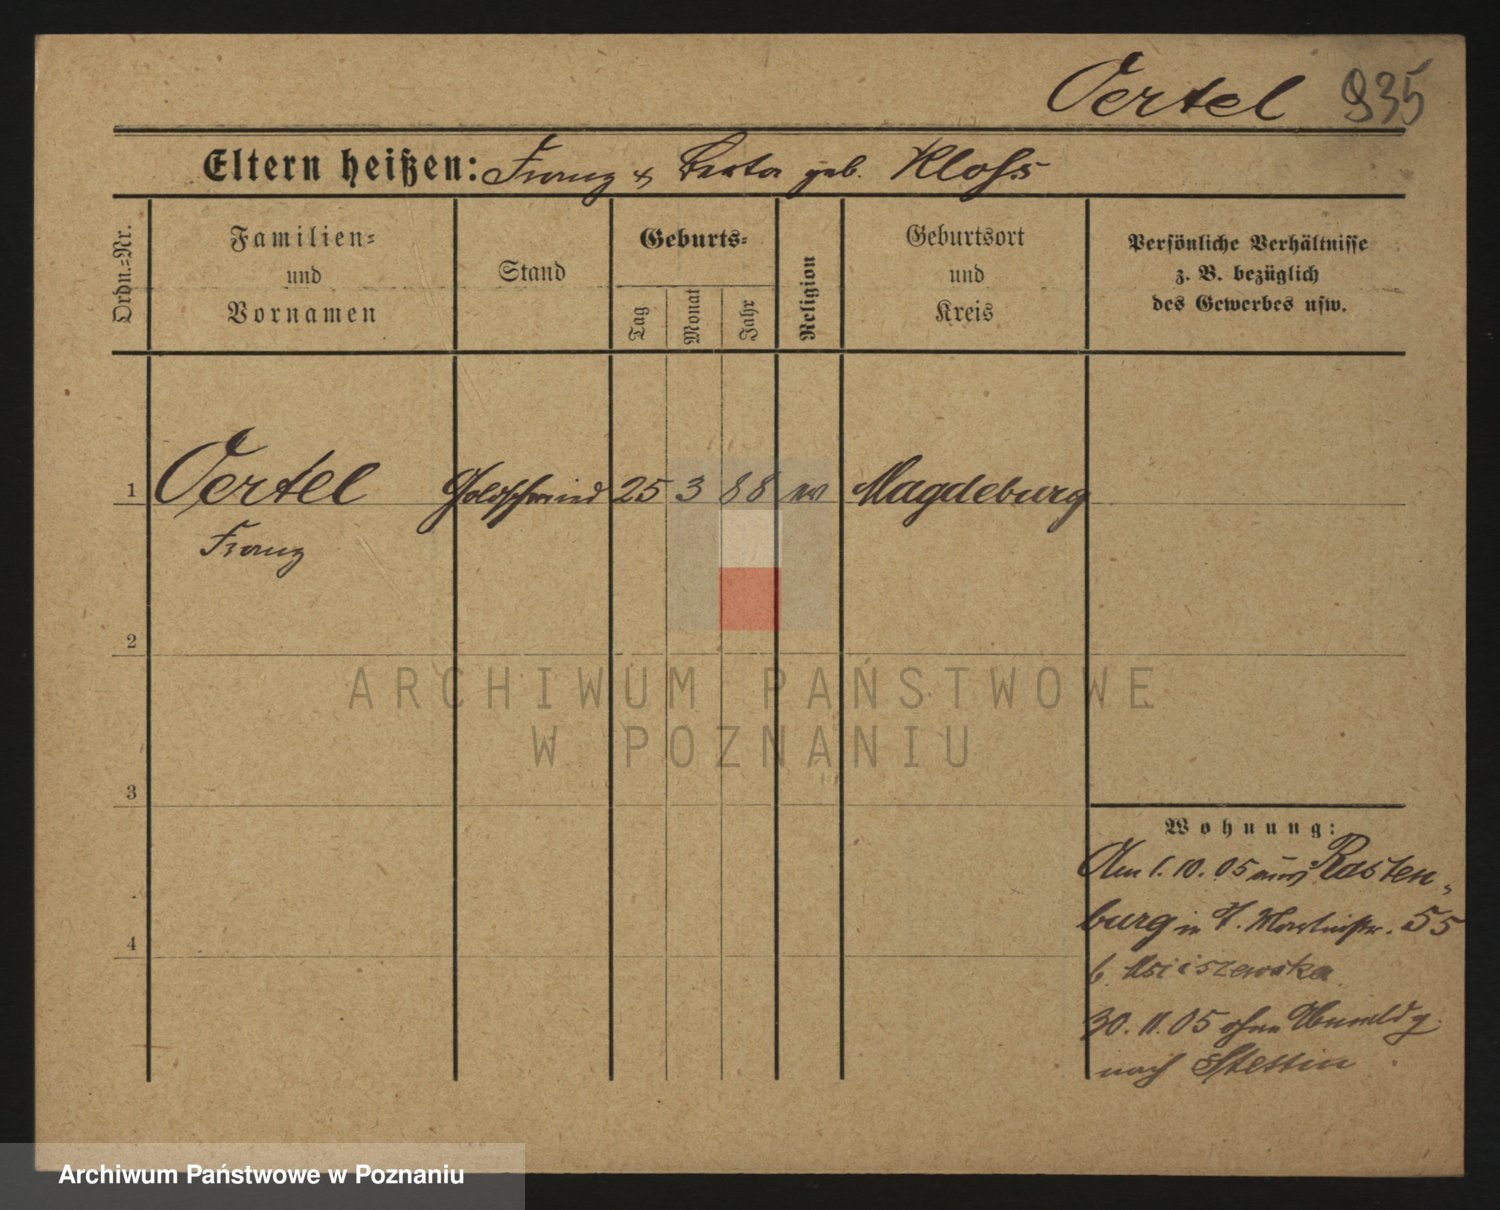 Oertel 935
Eltern heißen: Franz & Berta geb. Kloss
Ordn.-Nr.
Familien- und Vornamen
Stand
Geburts-
Tag
Monat
Jahr
Religion
Geburtsort und Kreis
Persönliche Verhältnisse
z. B. bezüglich
des Gewerbes usw.
1 Oertel Goldschmied 25 3 88 ev Magdeburg
Franz
2
ARCHIWUM PAŃSTWOWE
W POZNANIU
3
Wohnung:
Am 1. 10. 05 aus Rasten-
burg in St. Martinstr. 55
b.
4
30. 11. 05 ohne Abmeldg.
nach Stettin
Archiwum Państwowe w Poznaniu